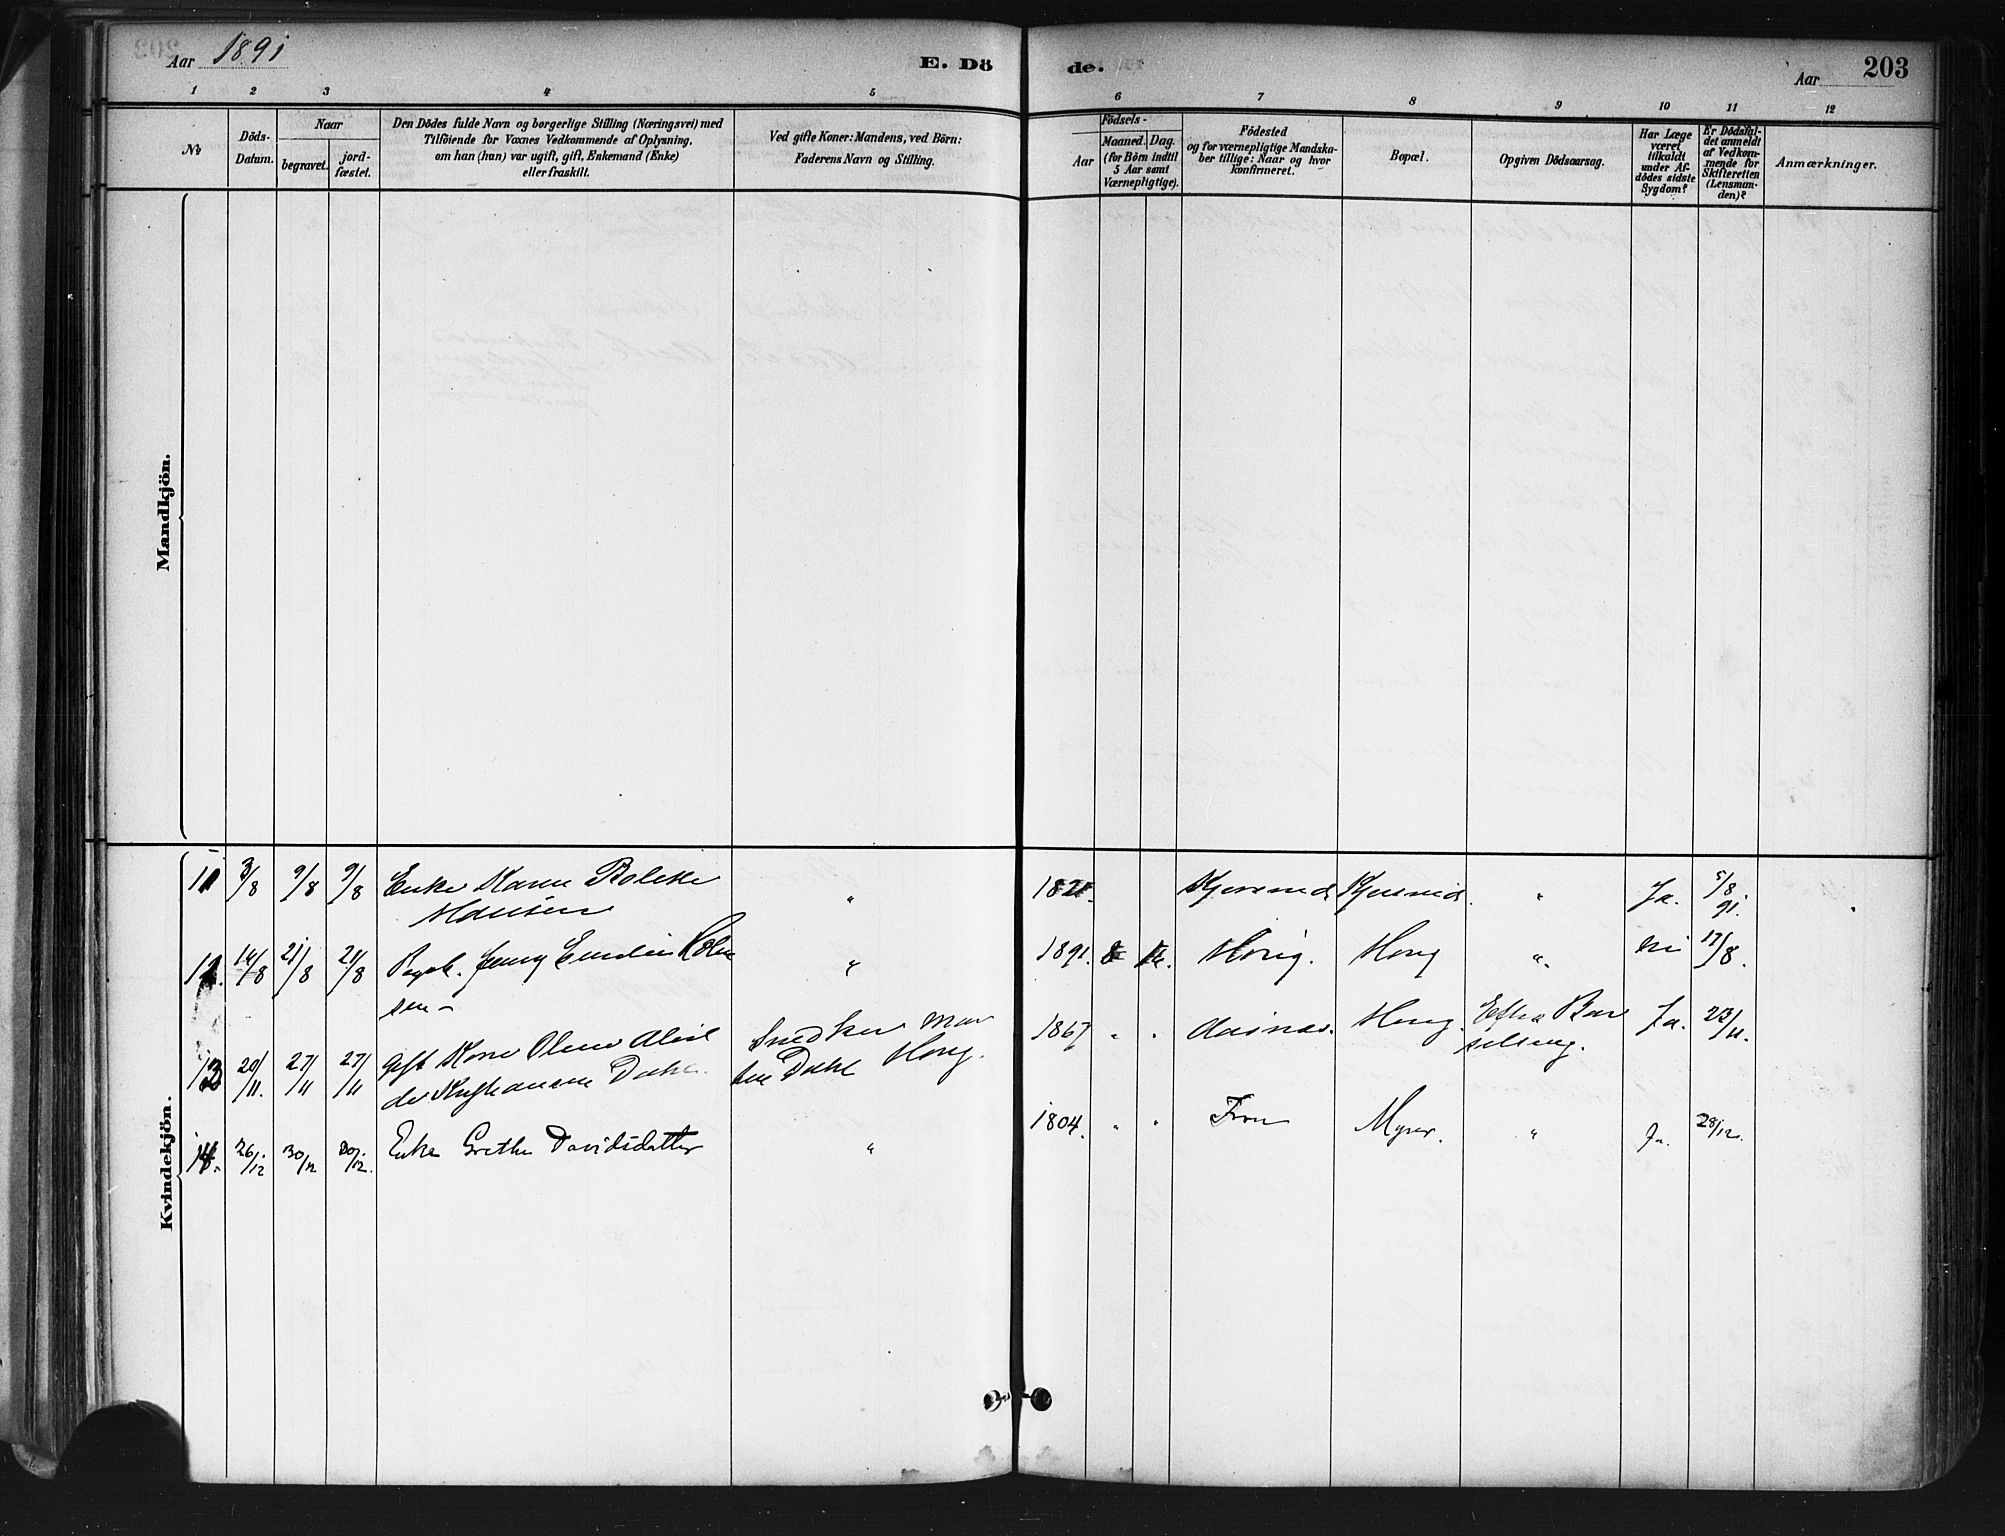 Aar 1891
E. Dö
de.
Aar
203
1 2 3 4 5 6 7 8 9 10 11 12
No
Döds-
Datum.
Naar
begravet.
jord-
fæstet.
Den Dödes fulde Navn og borgerlige Stilling (Næringsvei) med
Tilföiende for Voxnes Vedkommende af Oplysning,
om han (hun) var ugift, gift, Enkemand (Enke)
eller fraskilt.
Ved gifte Koner: Mandens, ved Börn:
Faderens Navn og Stilling.
Födsels-
Aar
Maaned.
Dag.
(for Börn indtil
5 Aar samt
Værnepligtige).
Födested
og for værnepligtige Mandska-
ber tillige: Naar og hvor
konfirmeret.
Bopæl.
Opgiven Dödsaarsag.
Har Læge
været
tilkaldt
under Af-
dödes sidste
Sygdom?
Er Dödsfal-
det anmeldt
af Vedkom-
mende for
Skifteretten
(Lensman-
den)?
Anmærkninger.
Mandkjön.
Kvindekjön.
11 3/8 9/8 9/8 Enke Karen
Hansen " 182 . " Ja. 5/8
91.
12. 14/8 21/8 21/8 Jenny
sen " 1891. Hong " 17/8.
13 20/11. 27/11 27/11 gift Olene
Dahl. Snedker Mar
tin Dahl Hong. 1867 " " Hong. Efter Bar
selseng. Ja. 23/11.
14. 26/12 30/12 30/12. Enke Grethe Davidsdatter " 1804. " " Fron Myrer. " Ja. 28/12.